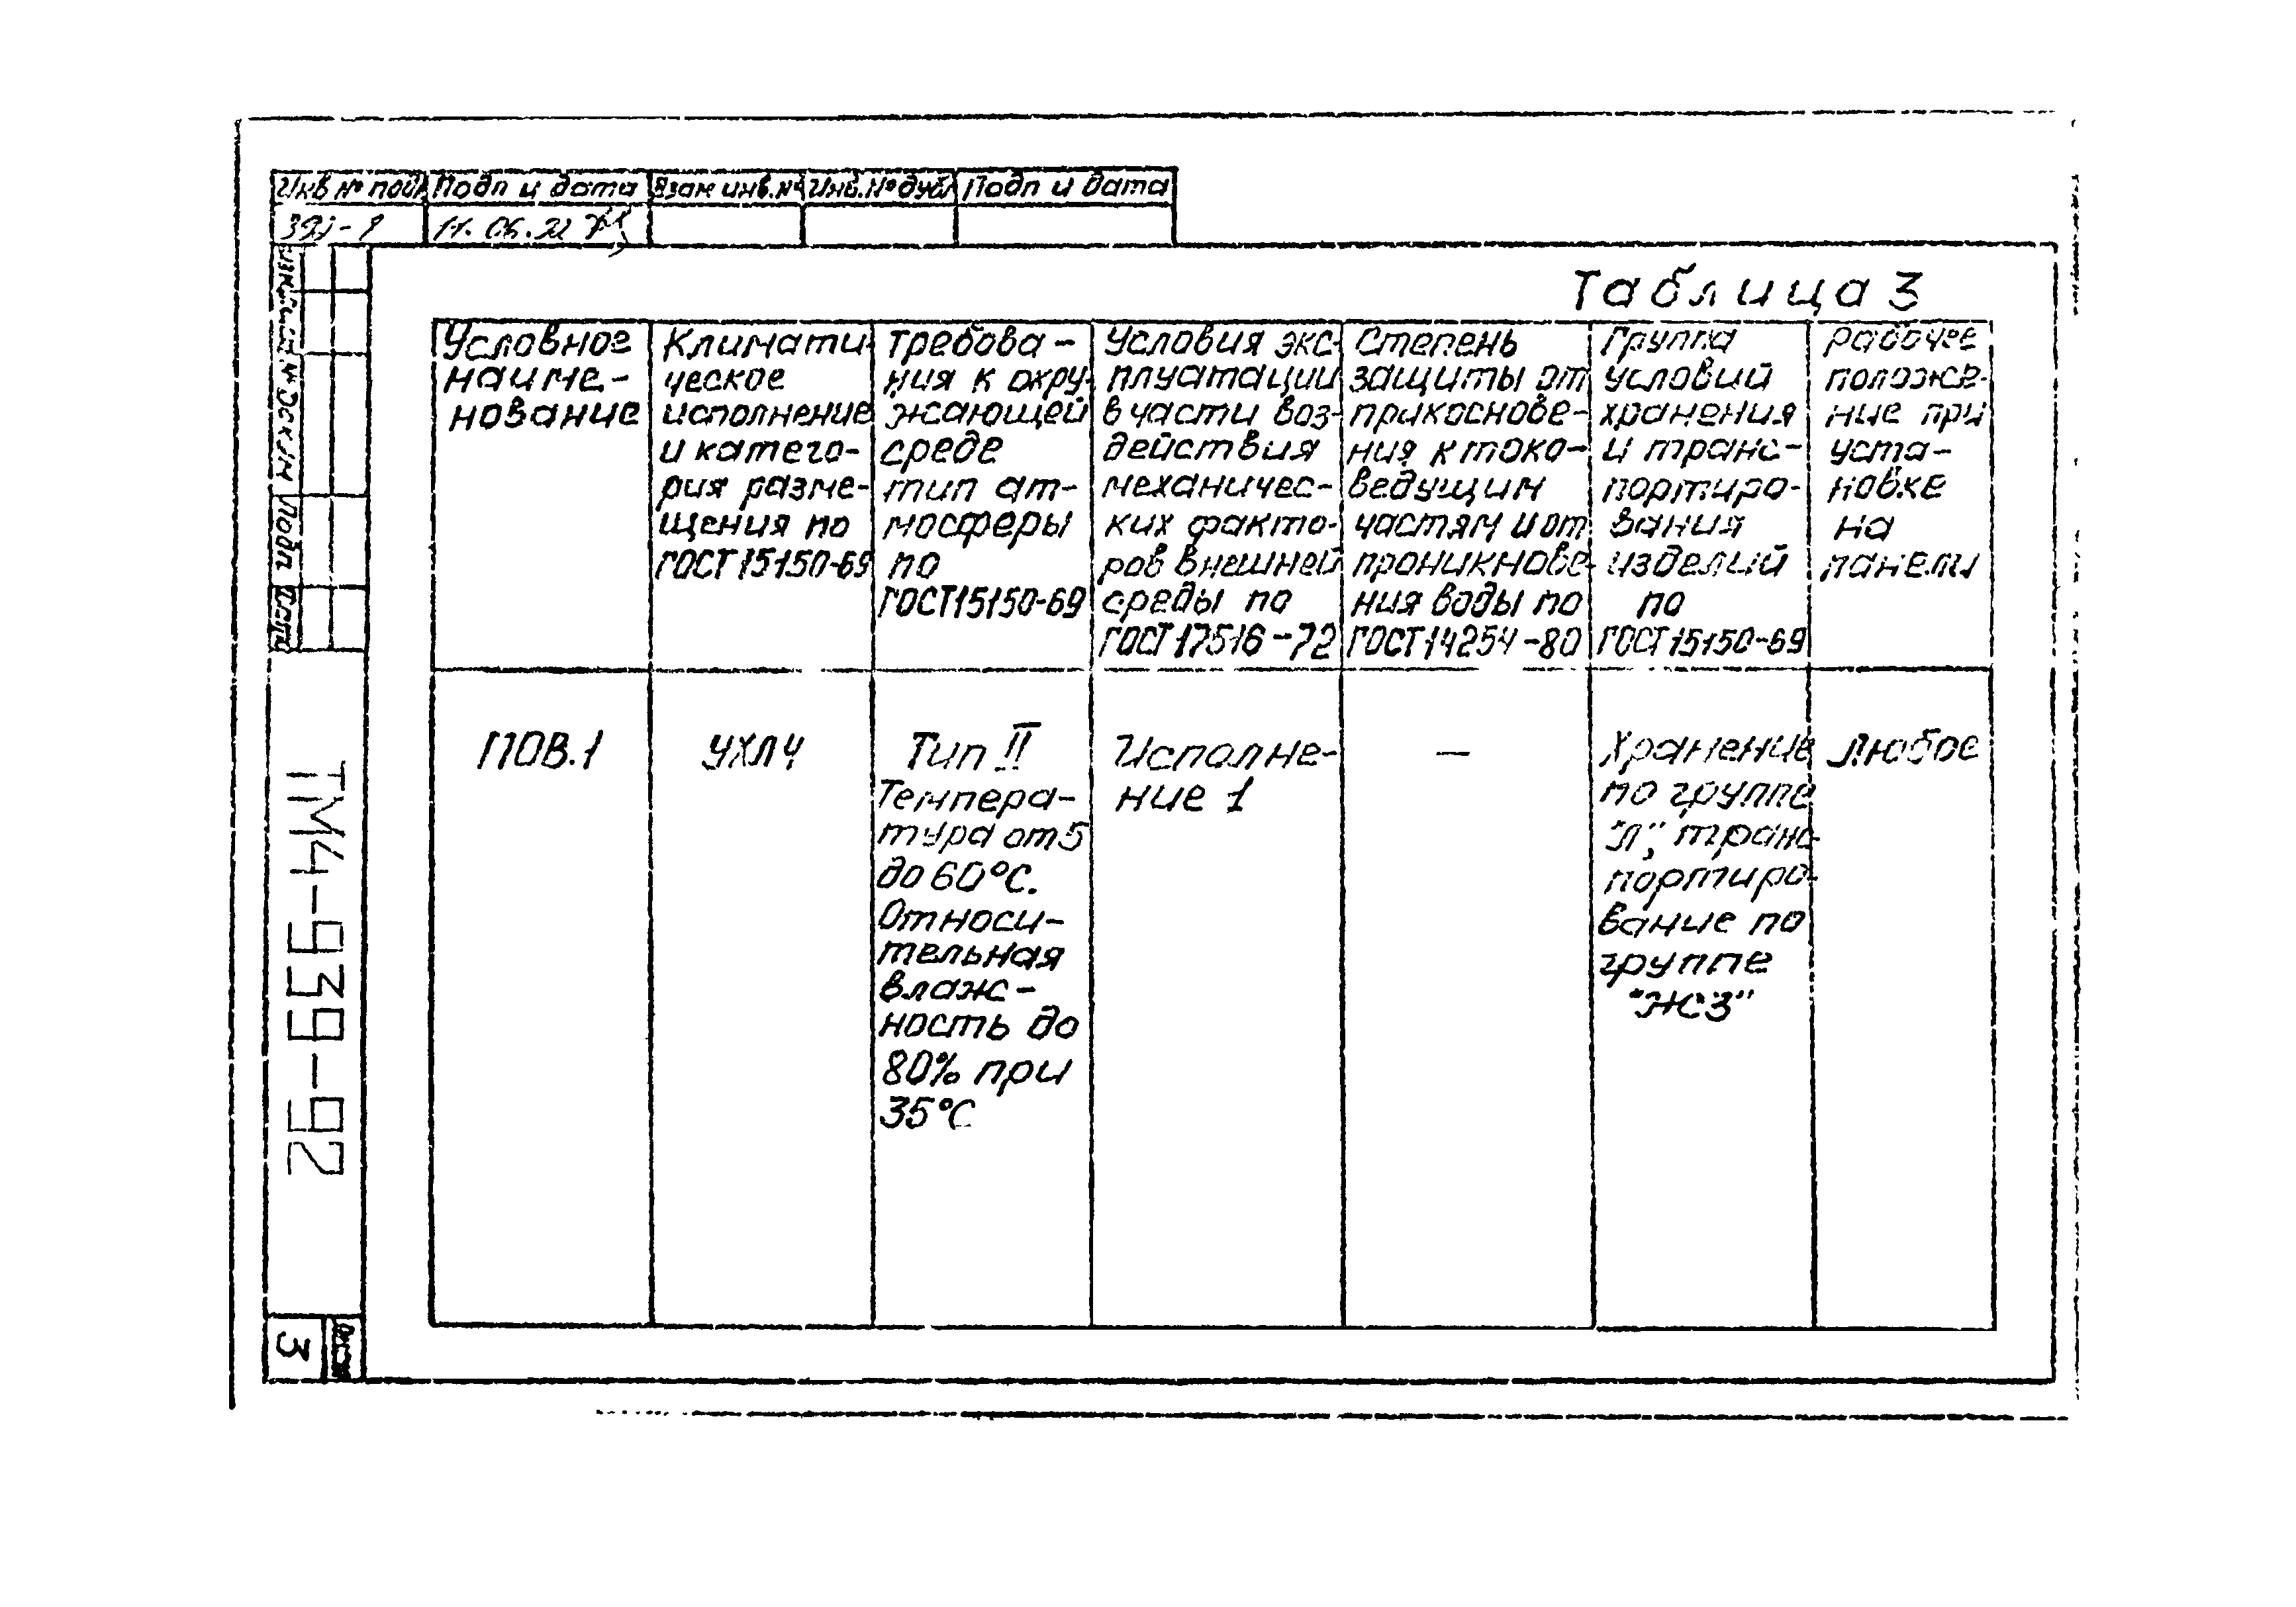 Подп и дата
Взам инв.№
Подп и дата
11.06.92
Таблица 3
Условное
наиме-
нование
Климати-
ческое
исполнение
и катего-
рия разме-
щения по
ГОСТ 15150-69
Требова-
ния к окру-
жающей
среде
тип ат-
мосферы
по
ГОСТ15150-69
Условия экс-
плуатации
в части воз-
действия
механичес-
ких факто-
ров внешней
среды по
ГОСТ17516-72
Степень
защиты от
прикоснове-
ния к токо-
ведущим
частям и от
проникнове-
ния воды по
ГОСТ14254-80
Группа
условий
хранения
и транс-
портиро-
вания
изделий
по
ГОСТ15150-69
Рабочее
положе-
ние при
уста-
новке
на
панели
ПОВ.1
УХЛ4
Тип II
Темпера-
тура от 5
до 60°С.
Относи-
тельная
влаж-
ность до
80% при
35°С
Исполне-
ние 1
—
Хранение
по группе
"Л", транс-
портиро-
вание по
группе
"Ж3"
Любое
Подп
ТМ4-939-92
Лист
3